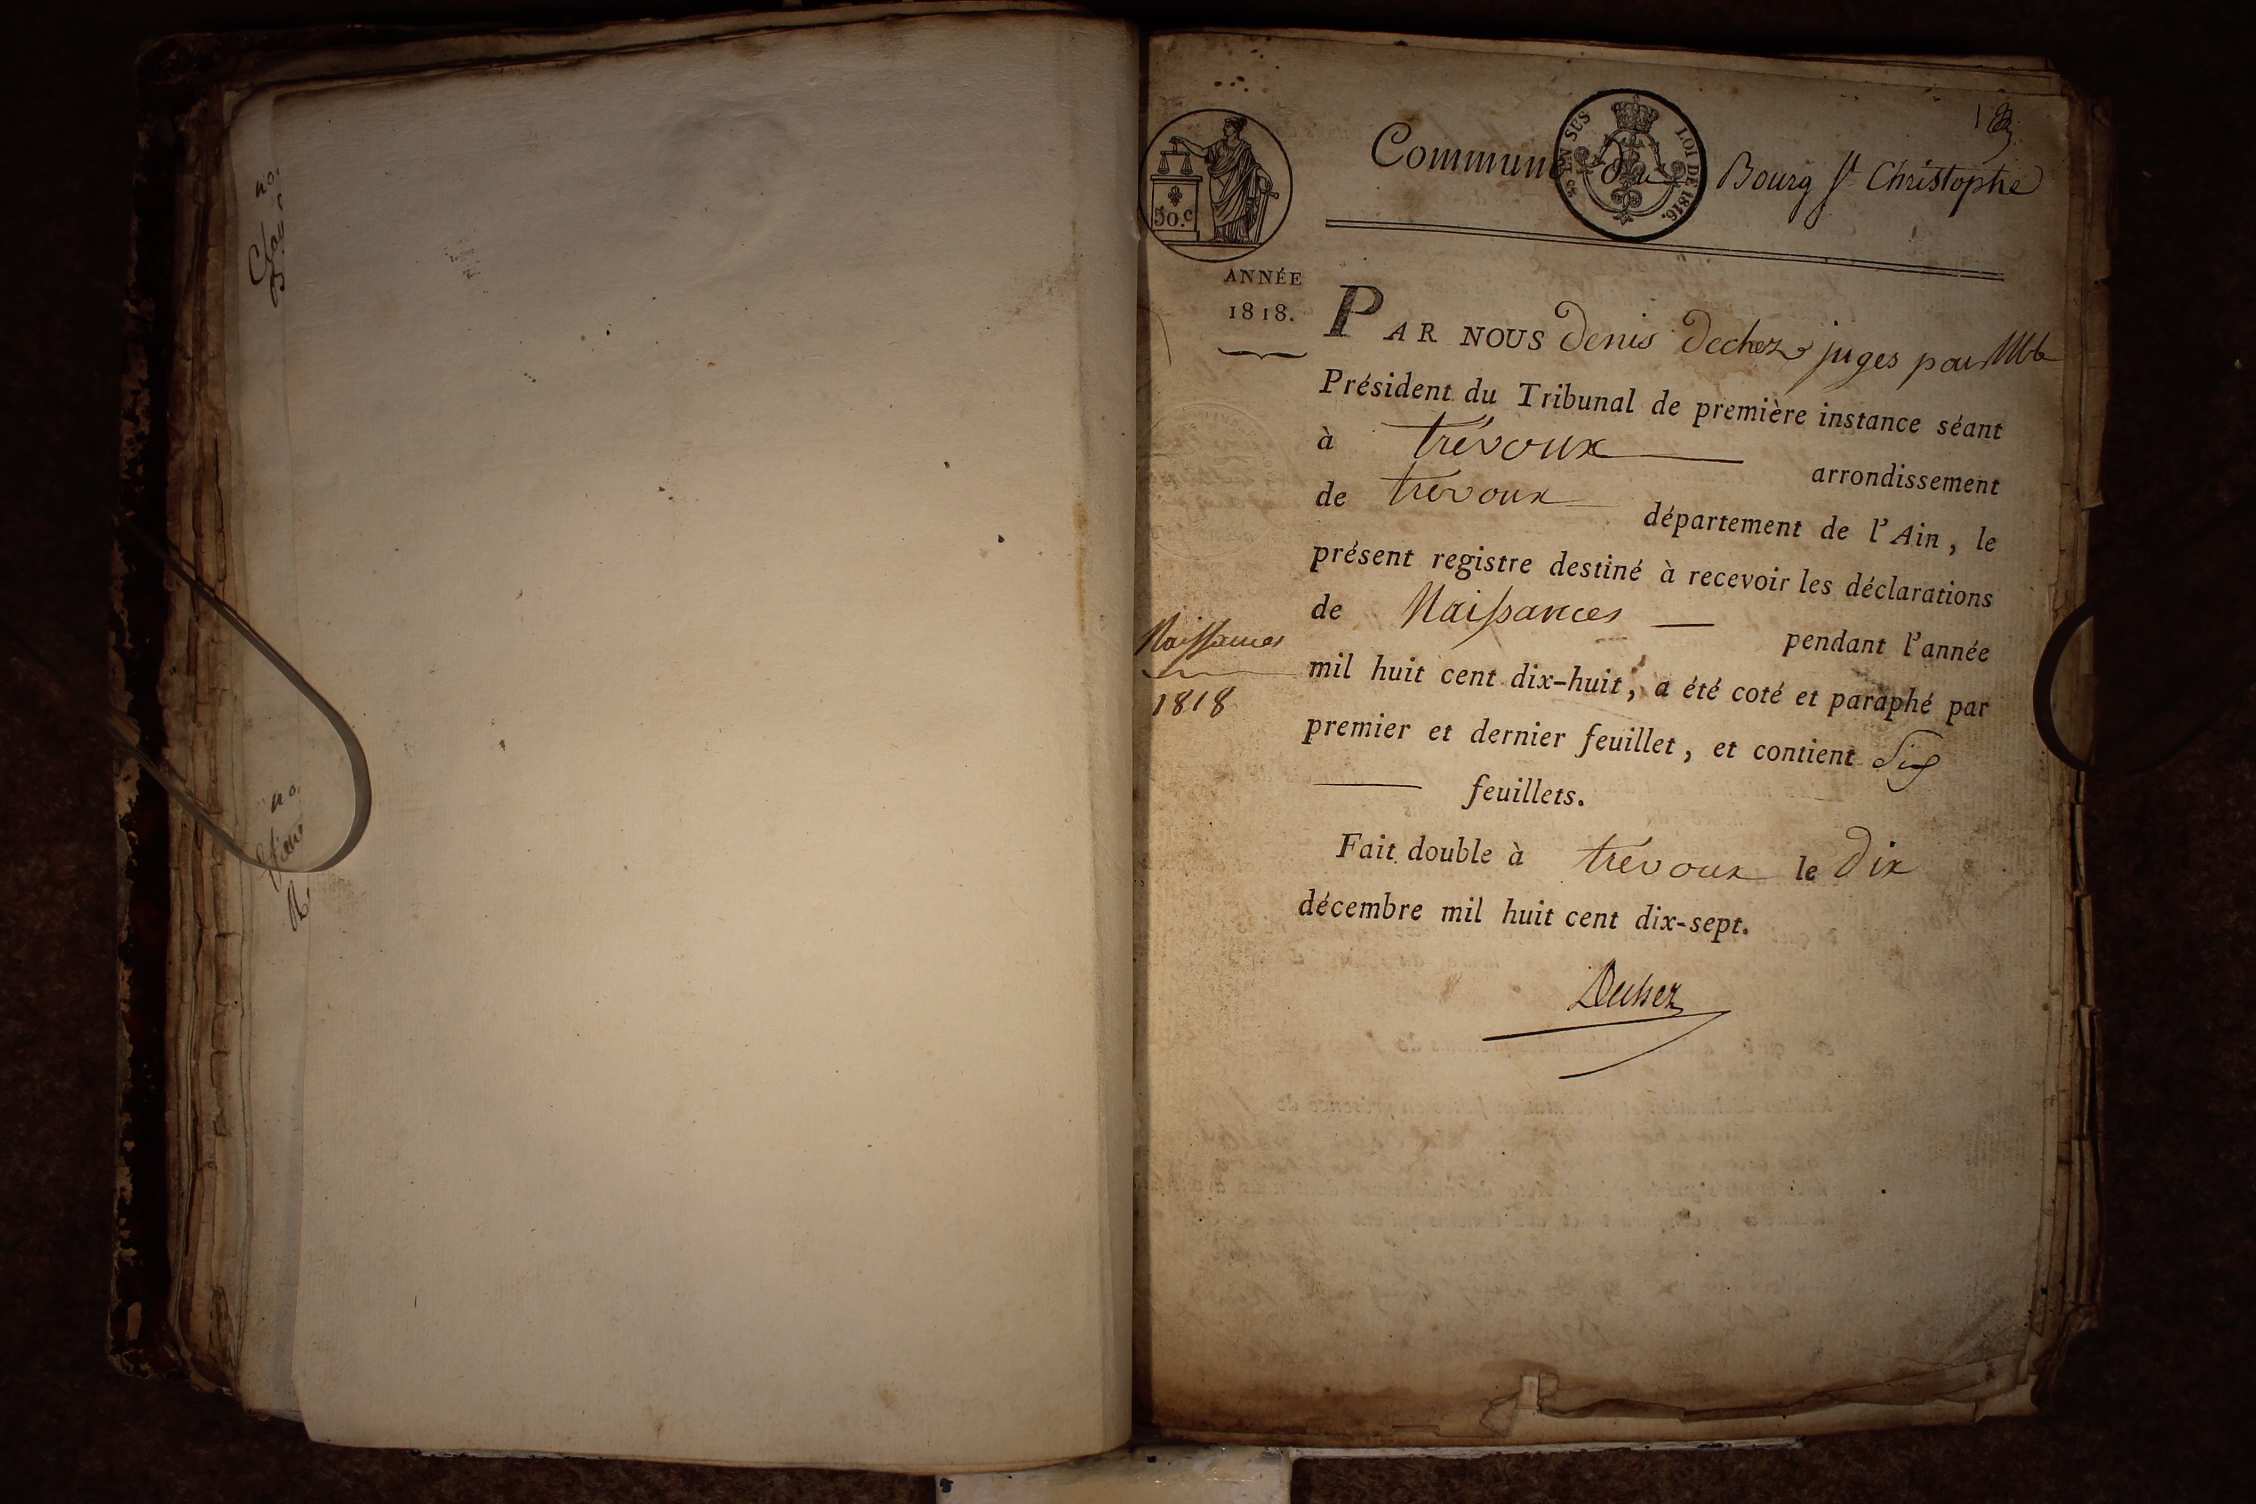 Commune du Bourg St Christophe
25 EN SUS
LOI DE 1816.
50.c
ANNÉE
1818.
PAR NOUS Denis Dechez juges pour Mr le
Président du Tribunal de première instance séant
à trévoux arrondissement
de trévoux département de l'Ain, le
présent registre destiné à recevoir les déclarations
de Naissances pendant l'année
mil huit cent dix-huit, a été coté et paraphé par
premier et dernier feuillet, et contient Six
feuillets.
Fait double à trévoux le Dix
décembre mil huit cent dix-sept.
Dechez
Naissances
1818